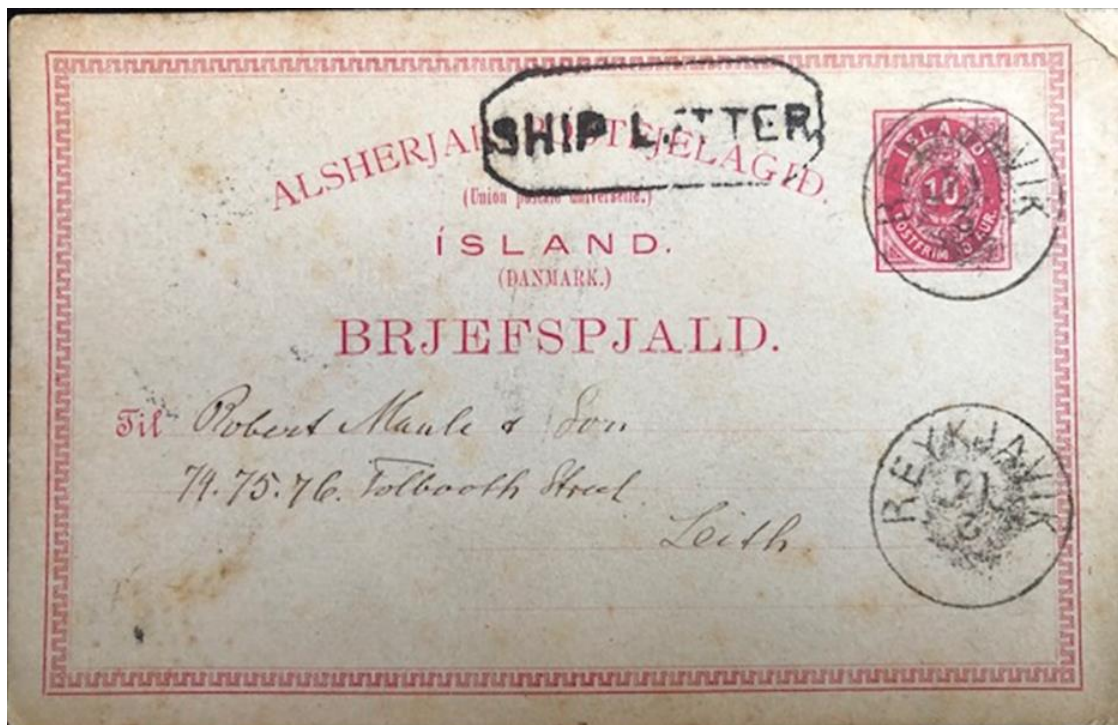 SHIP LETTER
ALSHERJAR PÓSTFJELAGIÐ.
(Union postale universelle.)
ÍSLAND.
(DANMARK.)
BRJEFSPJALD.
ÍSLAND
10
PÓSTFRÍM. 10 AUR.
REYKJAVIK
Til Robert Maule & Son
74.75.76. Tolbooth Street
Leith
REYKJAVIK
21
3